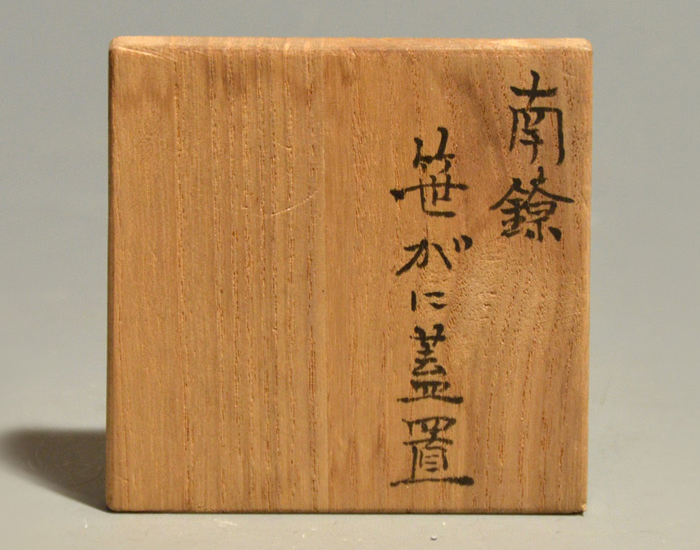 南鐐
笹がに蓋置